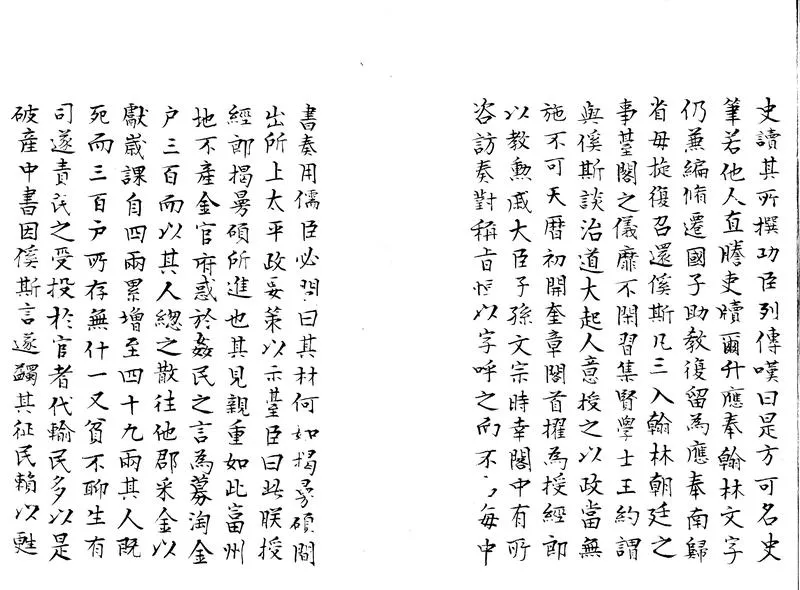 史讀其所撰功臣列傳嘆曰是方可名史
筆若他人直謄吏牘爾升應奉翰林文字
仍兼編脩遷國子助教復留為應奉南歸
省母旋復召還傒斯凡三入翰林朝廷之
事臺閣之儀靡不閑習集賢學士王約謂
與傒斯談治道大起人意授之以政當無
施不可天曆初開奎章閣首擢為授經郎
以教勲戚大臣子孫文宗時幸閣中有所
咨訪奏對稱旨恒以字呼之而不〻每中
書奏用儒臣必問曰其材何如揭曼碩間
出所上太平政要策以示臺臣曰此朕授
經郎揭曼碩所進也其見親重如此富州
地不產金官府惑於姦民之言為募淘金
户三百而以其人總之散往他郡采金以
獻嵗課自四兩累增至四十九兩其人既
死而三百户所存無什一又貧不聊生有
司遂責民之受投於官者代輸民多以是
破產中書因傒斯言遂蠲其征民賴以甦